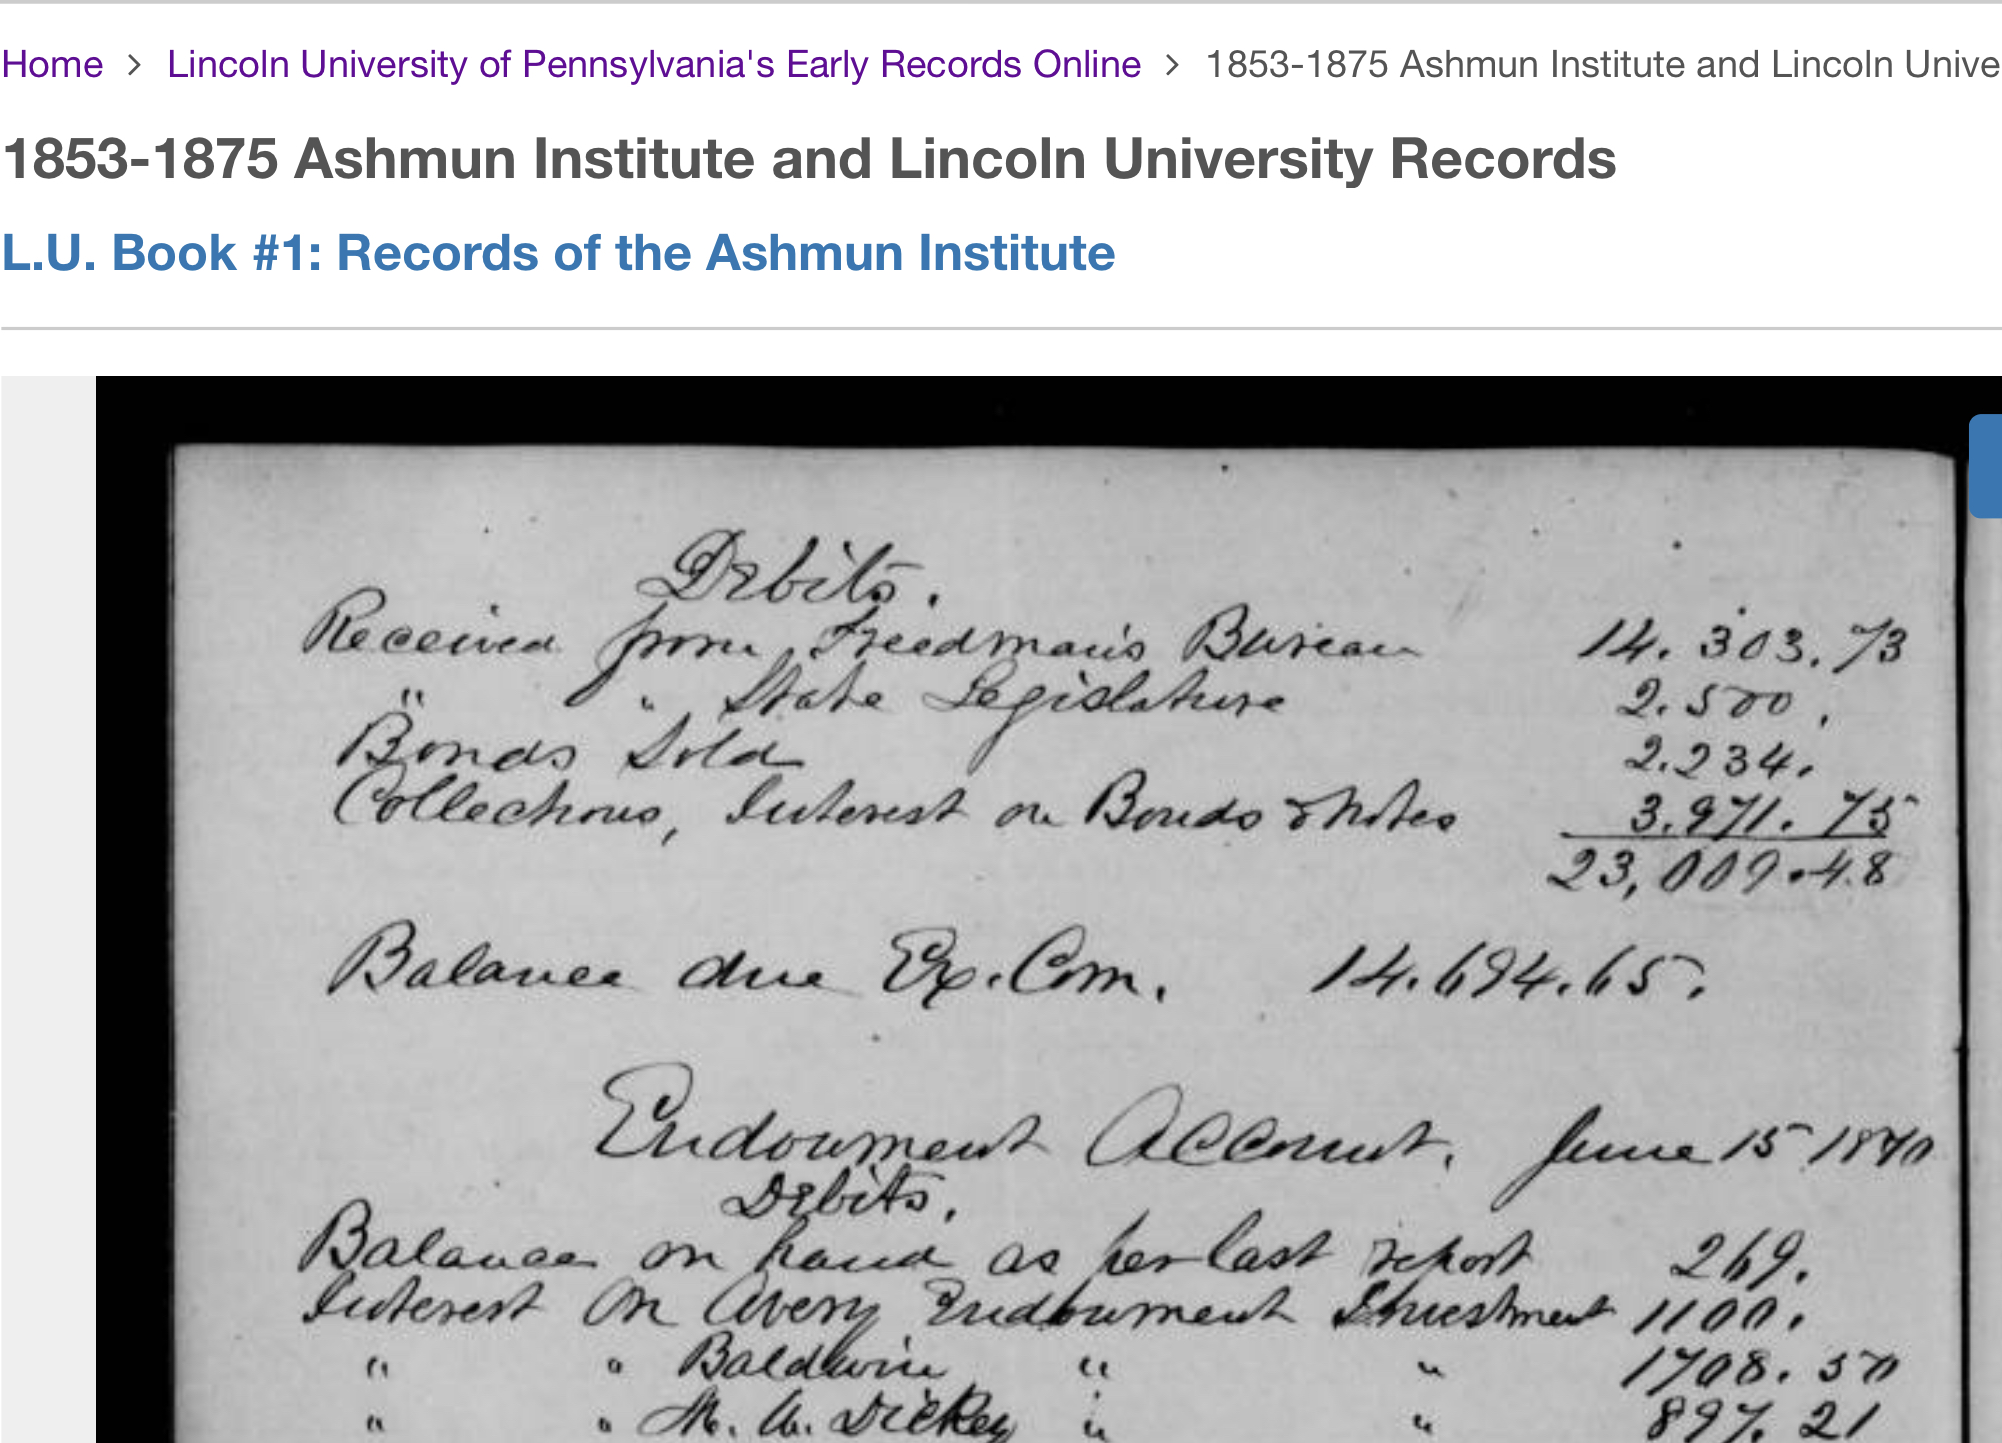 Home > Lincoln University of Pennsylvania's Early Records Online > 1853-1875 Ashmun Institute and Lincoln Unive
1853-1875 Ashmun Institute and Lincoln University Records
L.U. Book #1: Records of the Ashmun Institute
Debits.
Received from Freedman's Bureau 14.303.73
" " State Legislature 2.500.
Bonds Sold 2.234.
Collections, Interest on Bonds & Notes 3.971.75
23,009.48
Balance due Ex. Com. 14.694.65.
Endowment Account. June 15 1870
Debits.
Balance on hand as per last report 269.
Interest on Avery Endowment Investment 1100.
" " Baldwin " " 1708.50
" " Dickey " " 897.21